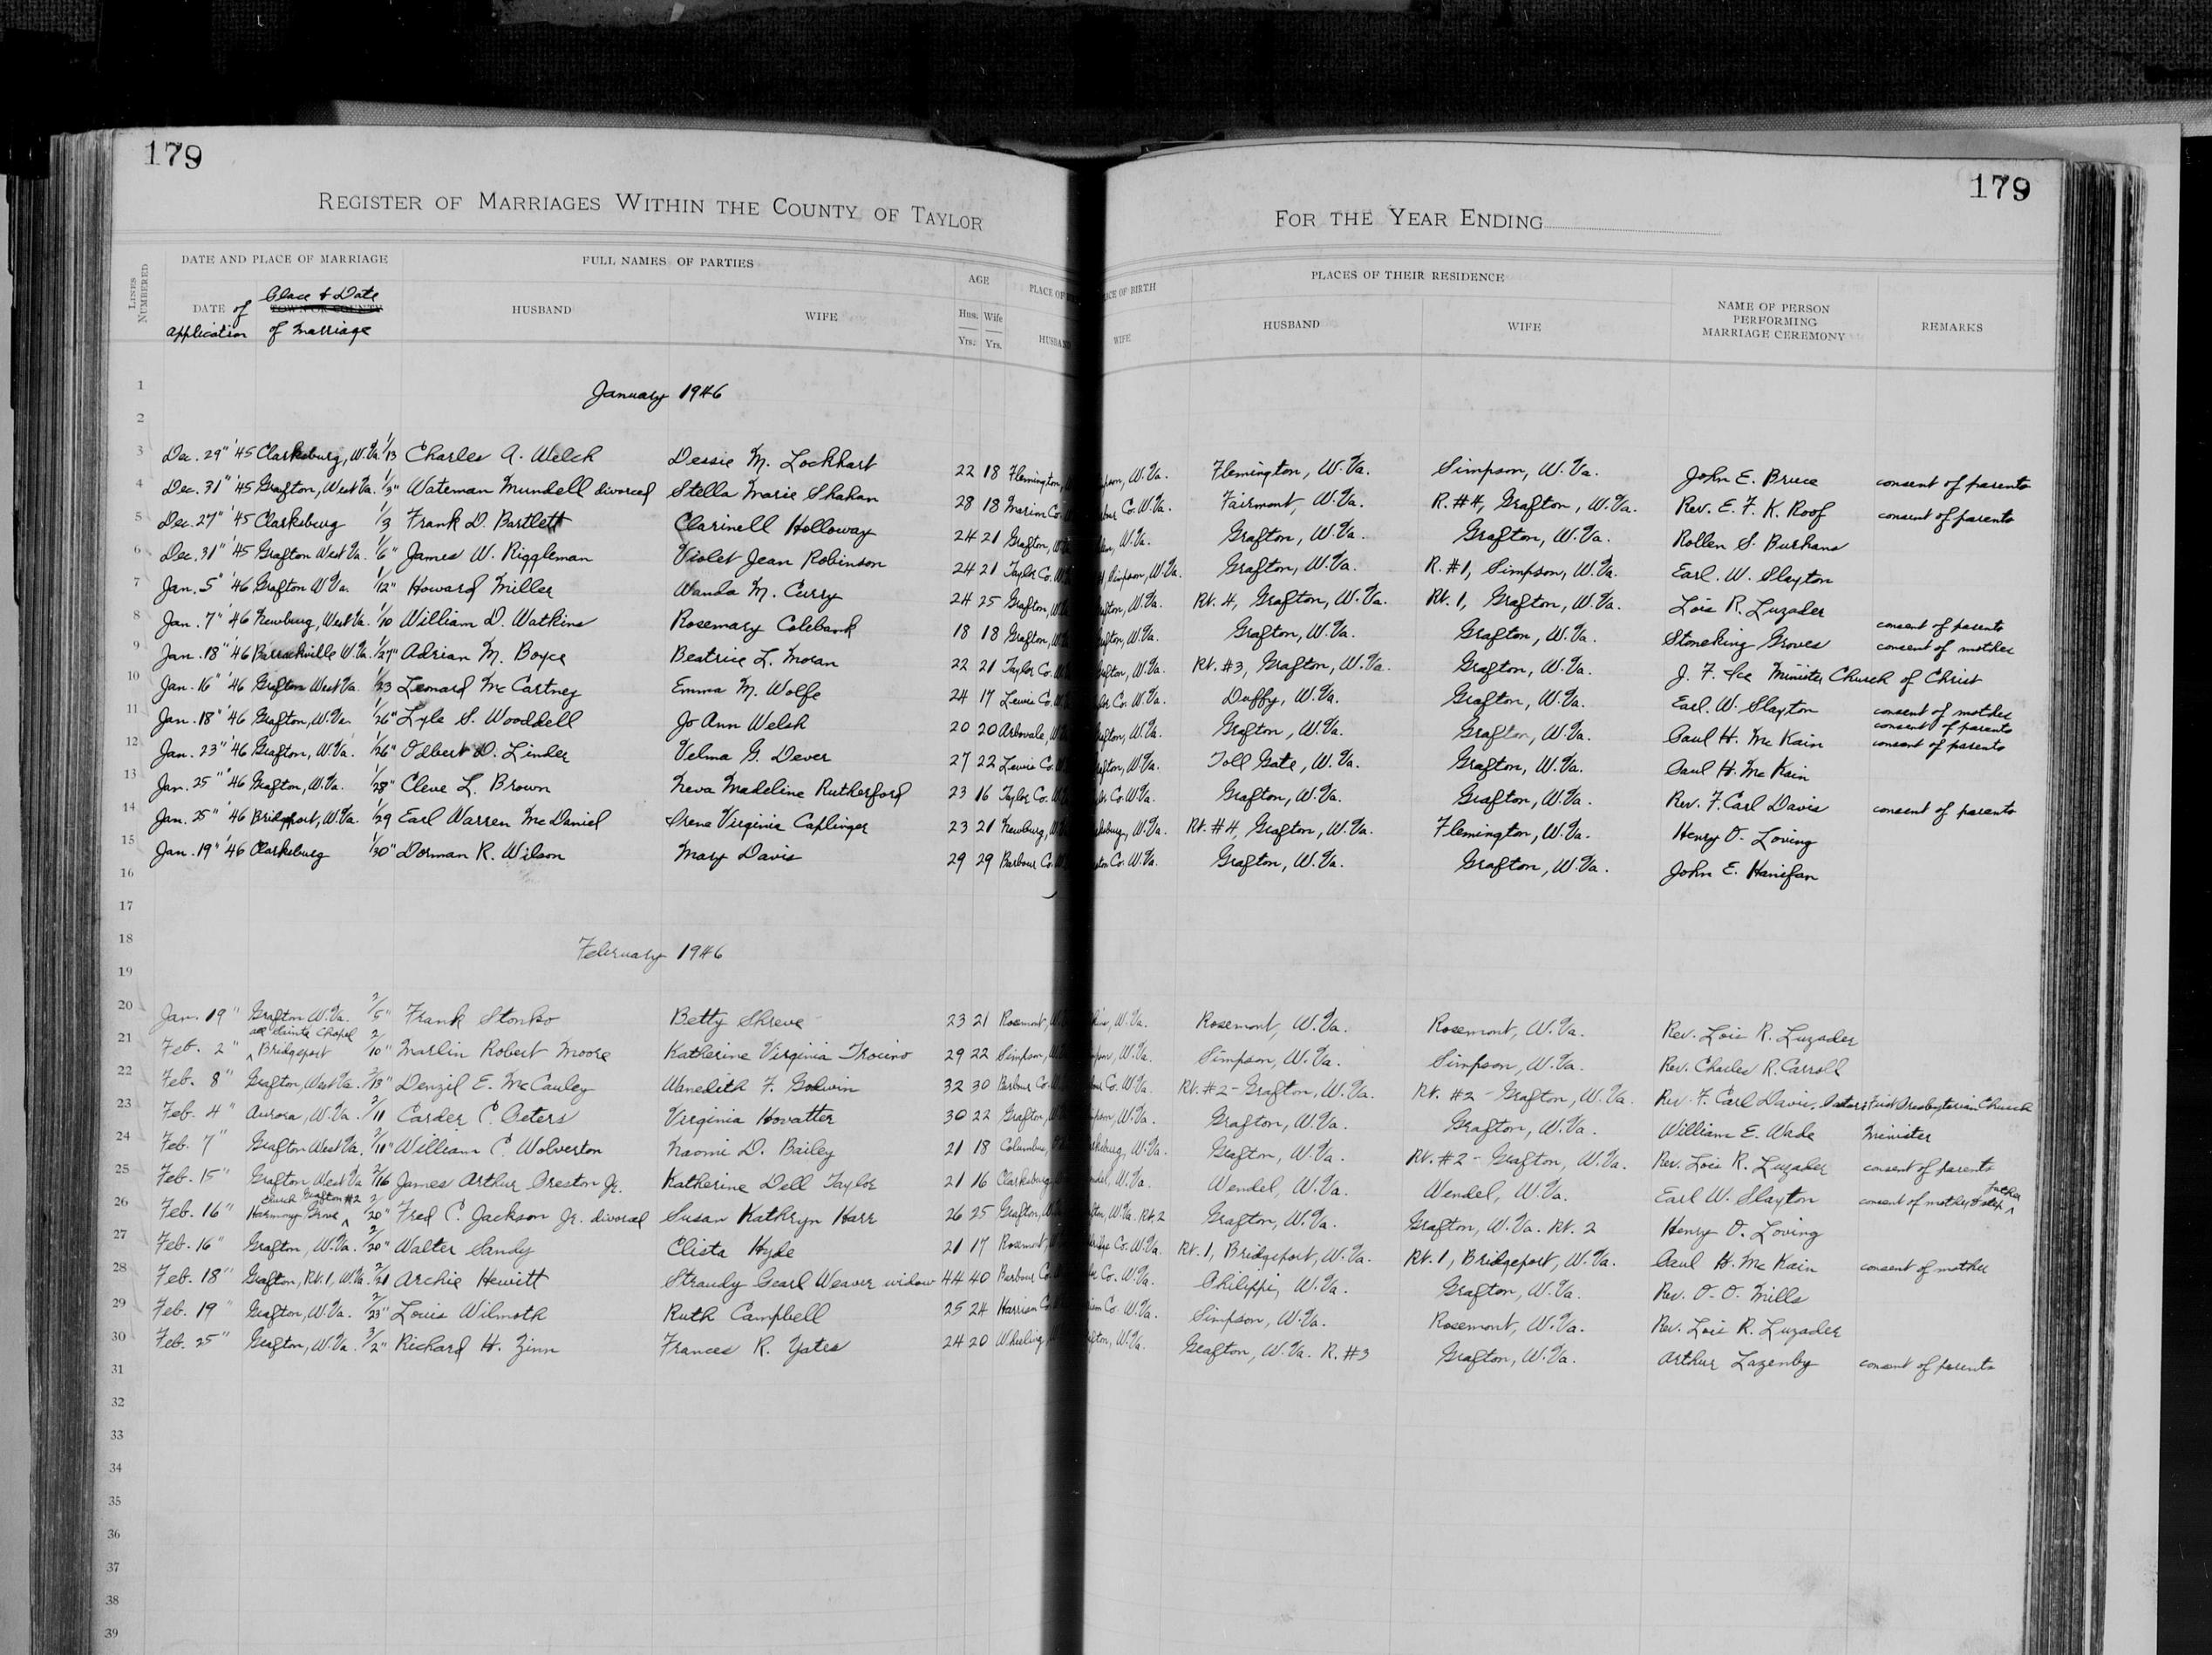 179
179
REGISTER OF MARRIAGES WITHIN THE COUNTY OF TAYLOR
FOR THE YEAR ENDING
LINES NUMBERED
DATE AND PLACE OF MARRIAGE
FULL NAMES OF PARTIES
AGE
PLACE OF
PLACE OF BIRTH
PLACES OF THEIR RESIDENCE
NAME OF PERSON PERFORMING MARRIAGE CEREMONY
REMARKS
DATE of application
Place & Date of marriage
TOWN OR COUNTY
HUSBAND
WIFE
Hus. Yrs.
Wife Yrs.
HUSBAND
WIFE
HUSBAND
WIFE
1 January 1946
2
3 Dec. 29" '45 Clarksburg, W.Va. 1/13 Charles A. Welch Dessie M. Lockhart 22 18 Flemington, W.Va. Flemington, W.Va. Simpson, W.Va. John E. Bruce consent of parents
4 Dec. 31" '45 Grafton, West Va. 1/3" Wateman Mundell divorced Stella Marie Shahan 28 18 Marion Co. Co. W.Va. Fairmont, W.Va. R. #4, Grafton, W.Va. Rev. E. F. K. Roof consent of parents
5 Dec. 27" '45 Clarksburg 1/3 Frank D. Bartlett Clarinell Holloway 24 21 Grafton, W.Va. Grafton, W.Va. Grafton, W.Va. Rollen S. Burhans
6 Dec. 31" '45 Grafton West Va. 1/6" James W. Riggleman Violet Jean Robinson 24 21 Taylor Co. Simpson, W.Va. Grafton, W.Va. R. #1, Simpson, W.Va. Earl. W. Slayton
7 Jan. 5" '46 Grafton W Va. 1/12" Howard Miller Wanda M. Curry 24 25 Grafton, W.Va. Rt. 4, Grafton, W.Va. Rt. 1, Grafton, W.Va. Lois R. Luzader
8 Jan. 7" '46 Newburg, West Va. 1/10 William D. Watkins Rosemary Colebank 18 18 Grafton, W.Va. Grafton, W.Va. Grafton, W.Va. Stoneking Groves consent of parents consent of mother
9 Jan. 18" '46 Barrackville W.Va. 1/27" Adrian M. Boyce Beatrice L. Moran 22 21 Taylor Co. W.Va. Rt. #3, Grafton, W.Va. Grafton, W.Va. J. F. Ice Minister Church of Christ
10 Jan. 16" '46 Grafton West Va. 1/23 Leonard McCartney Emma M. Wolfe 24 17 Lewis Co. Co. W.Va. Duffy, W.Va. Grafton, W.Va. Earl. W. Slayton consent of mother
11 Jan. 18" '46 Grafton, W.Va. 1/26" Lyle S. Wooddell Jo Ann Welsh 20 20 Arbovale, W.Va. Grafton, W.Va. Grafton, W.Va. Paul H. McKain consent of parents consent of parents
12 Jan. 23" '46 Grafton, W.Va. 1/26" Odbert D. Linder Velma G. Dever 27 22 Lewis Co. W.Va. Toll Gate, W.Va. Grafton, W.Va. Paul H. McKain
13 Jan. 25" '46 Grafton, W.Va. 1/28" Cleve L. Brown Neva Madeline Rutherford 23 16 Taylor Co. Co. W.Va. Grafton, W.Va. Grafton, W.Va. Rev. F. Carl Davis consent of parents
14 Jan. 25" '46 Bridgeport, W.Va. 1/29 Earl Warren McDaniel Irena Virginia Caplinger 23 21 Newburg, W.Va. Rt. #4, Grafton, W.Va. Flemington, W.Va. Henry O. Loving
15 Jan. 19" '46 Clarksburg 1/30" Dorman R. Wilson Mary Davis 29 29 Barbour Co. Co. W.Va. Grafton, W.Va. Grafton, W.Va. John E. Hanifan
16
17
18 February 1946
19
20 Jan. 19" Grafton W.Va. 2/5" Frank Stonko Betty Shreve 23 21 Rosemont, W.Va. Rosemont, W.Va. Rosemont, W.Va. Rev. Lois R. Luzader
21 Feb. 2" All Saints Chapel Bridgeport 2/10" Marlin Robert Moore Katherine Virginia Trocino 29 22 Simpson, W.Va. Simpson, W.Va. Simpson, W.Va. Rev. Charles R. Carroll
22 Feb. 8" Grafton, West Va. 2/13" Denzil E. McCauley Wanedith F. Godwin 32 30 Barbour Co. Co. W.Va. Rt. #2 - Grafton, W.Va. Rt. #2 - Grafton, W.Va. Rev. F. Carl Davis, Pastor First Presbyterian Church
23 Feb. 4" Aurora, W.Va. 2/11 Carder C. Peters Virginia Hovatter 30 22 Grafton, W.Va. Grafton, W.Va. Grafton, W.Va. William E. Wade Minister
24 Feb. 7" Grafton West Va. 2/11" William C. Wolverton Naomi D. Bailey 21 18 Columbus, W.Va. Grafton, W.Va. Rt. #2 - Grafton, W.Va. Rev. Lois R. Luzader consent of parents
25 Feb. 15" Grafton, West Va 2/16 James Arthur Preston Jr. Katherine Dell Taylor 21 16 Clarksburg, W.Va. Wendel, W.Va. Wendel, W.Va. Earl W. Slayton consent of mother & father
26 Feb. 16" Harmony Grove Church Grafton #2 2/20" Fred C. Jackson Jr. divorced Susan Kathryn Harr 26 25 Grafton, W.Va. Rt. 2 Grafton, W.Va. Grafton, W.Va. Rt. 2 Henry O. Loving
27 Feb. 16" Grafton, W.Va. 2/20" Walter Sandy Clista Hyde 21 17 Rosemont, Co. W.Va. Rt. 1, Bridgeport, W.Va. Rt. 1, Bridgeport, W.Va. Paul H. McKain consent of mother
28 Feb. 18" Grafton, Rt. 1, W.Va. 2/21 Archie Hewitt Straudy Gearl Weaver widow 44 40 Barbour Co. Co. W.Va. Philippi, W.Va. Grafton, W.Va. Rev. O. O. Mills
29 Feb. 19" Grafton, W.Va. 2/23" Louis Wilmoth Ruth Campbell 25 24 Harrison Co. Co. W.Va. Simpson, W.Va. Rosemont, W.Va. Rev. Lois R. Luzader
30 Feb. 25" Grafton, W.Va. 3/2" Richard H. Zinn Frances R. Yates 24 20 Wheeling, W.Va. Grafton, W.Va. R. #3 Grafton, W.Va. Arthur Lazenby consent of parents
31
32
33
34
35
36
37
38
39